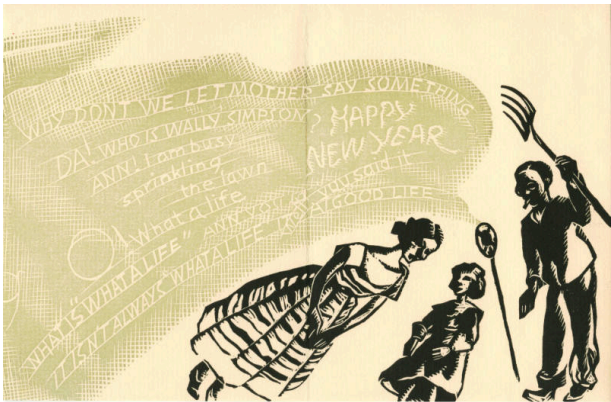 WHY DONT WE LET MOTHER SAY SOMETHING
DA! WHO IS WALLY SIMPSON?
HAPPY
NEW YEAR
ANN! I am busy
sprinkling
the lawn
you said it
O! what a life
ANN
WHAT IS "WHAT A LIFE"
IT ISNT ALWAYS "WHAT A LIFE" GOOD LIFE